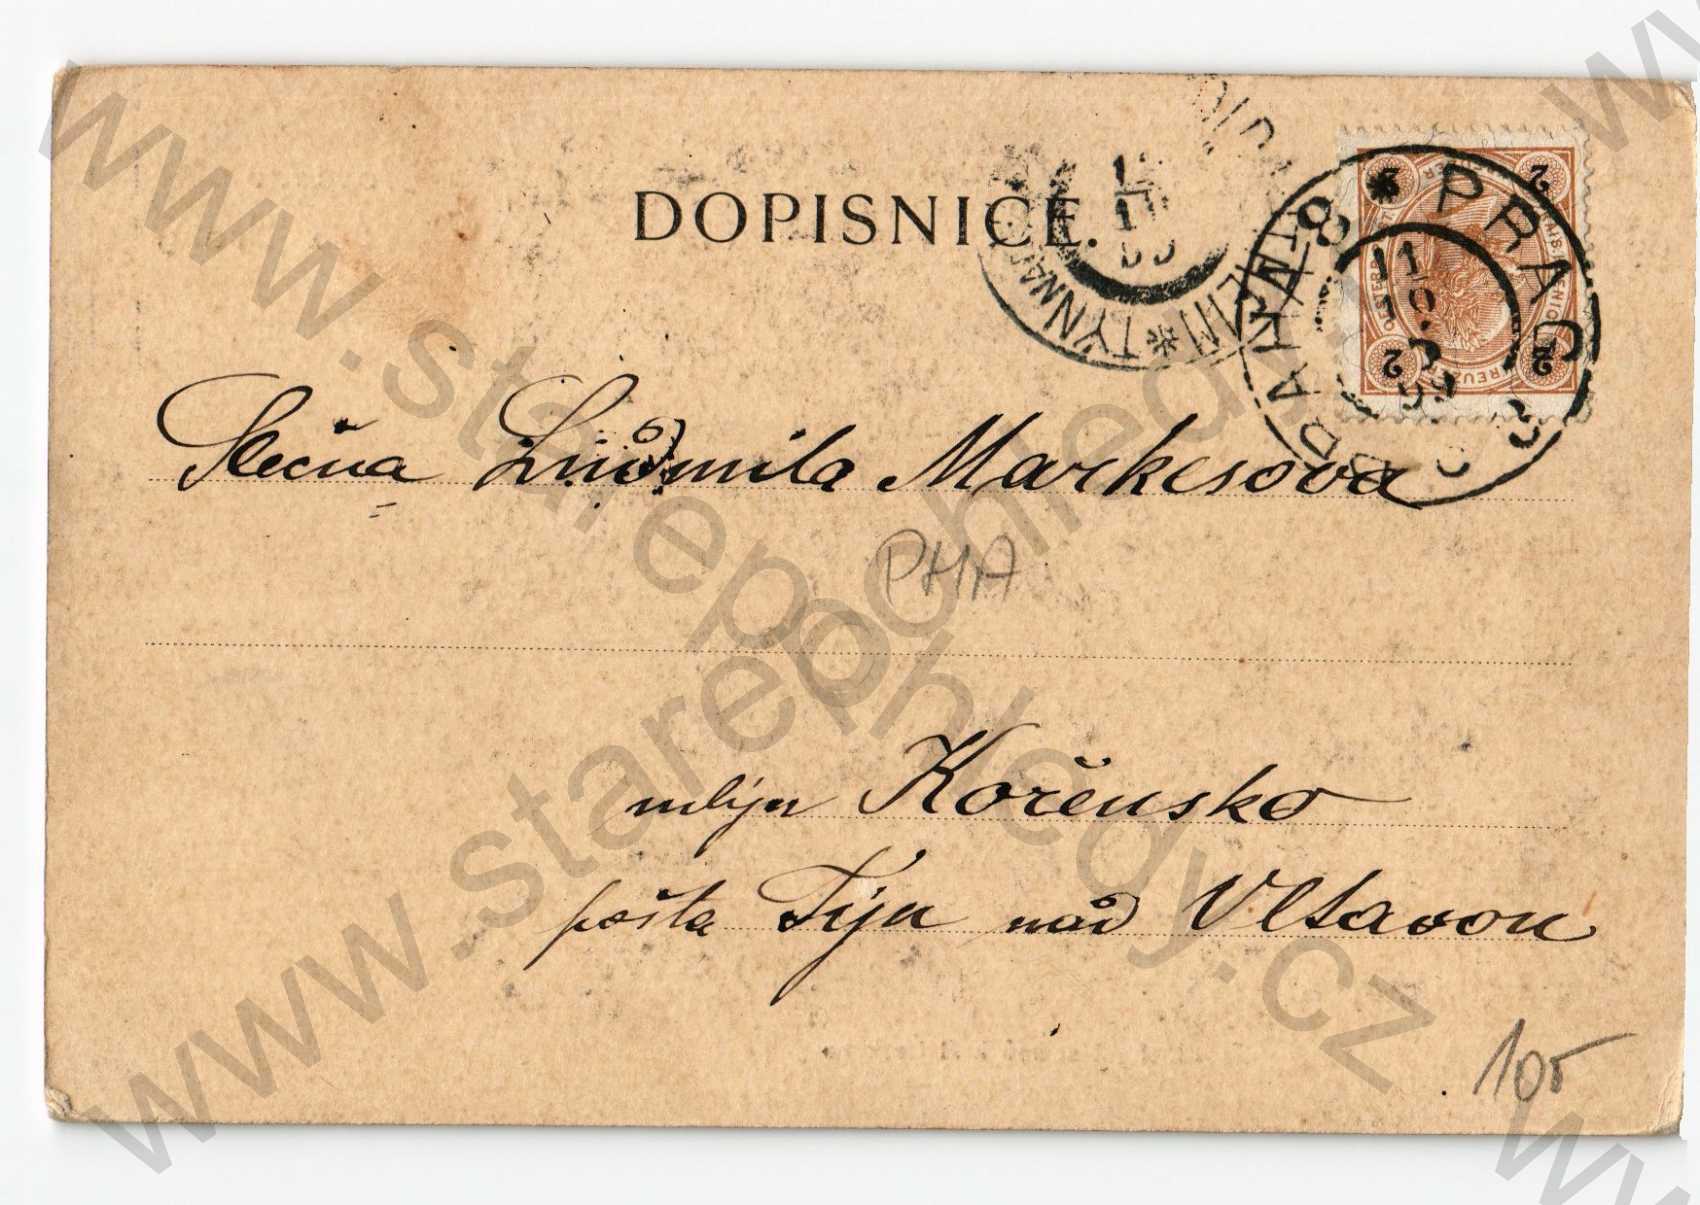 DOPISNICE.
Slečna Ludmila Markesova
PHA
mlýn Kořensko
pošta Týn nad Vltavou
105
PRAG
2 2
2 2
www.starepohledy.cz
www.starepohledy.cz